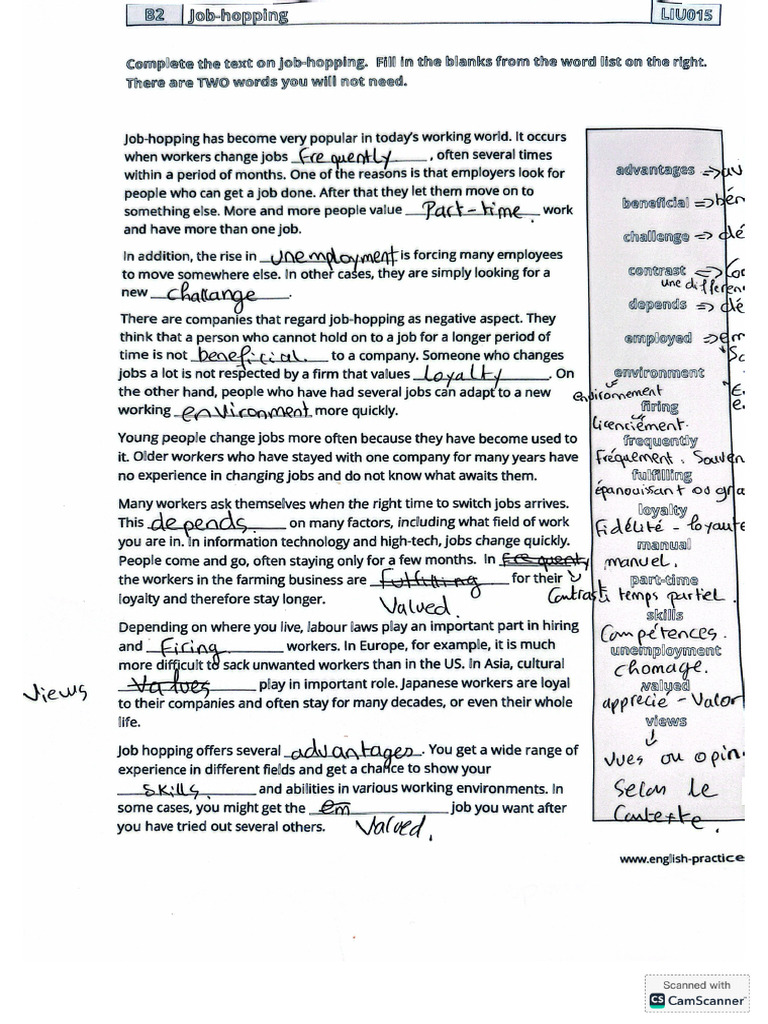 B2 Job-hopping LIU015
Complete the text on job-hopping. Fill in the blanks from the word list on the right.
There are TWO words you will not need.
Job-hopping has become very popular in today's working world. It occurs
when workers change jobs Frequently, often several times
within a period of months. One of the reasons is that employers look for
people who can get a job done. After that they let them move on to
something else. More and more people value Part-time. work
and have more than one job.
In addition, the rise in unemployment is forcing many employees
to move somewhere else. In other cases, they are simply looking for a
new challange.
There are companies that regard job-hopping as negative aspect. They
think that a person who cannot hold on to a job for a longer period of
time is not beneficial. to a company. Someone who changes
jobs a lot is not respected by a firm that values loyalty. On
the other hand, people who have had several jobs can adapt to a new
working environment more quickly.
Young people change jobs more often because they have become used to
it. Older workers who have stayed with one company for many years have
no experience in changing jobs and do not know what awaits them.
Many workers ask themselves when the right time to switch jobs arrives.
This depends on many factors, including what field of work
you are in. In information technology and high-tech, jobs change quickly.
People come and go, often staying only for a few months. In Frequenty
Contrast
the workers in the farming business are Fulfilling for their
Valued.
loyalty and therefore stay longer.
Depending on where you live, labour laws play an important part in hiring
and Firing workers. In Europe, for example, it is much
more difficult to sack unwanted workers than in the US. In Asia, cultural
views
Values play in important role. Japanese workers are loyal
to their companies and often stay for many decades, or even their whole
life.
Job hopping offers several advantages. You get a wide range of
experience in different fields and get a chance to show your
skills. and abilities in various working environments. In
some cases, you might get the em job you want after
you have tried out several others. Valued.
advantages => av
beneficial => bén
challenge => dé
contrast <=
une différen
depends => dé
employed => em
environment
environnement
firing
licenciement.
frequently
Fréquement. Souven
fulfilling
épanouissant ou gra
loyalty
Fidélité - loyauté
manual
manuel.
part-time
temps partiel.
skills
Compétences.
unemployment
chomage.
valued
apprecié - Valor
views
vues ou opin.
selon le
Contexte.
www.english-practice
Scanned with
CS CamScanner